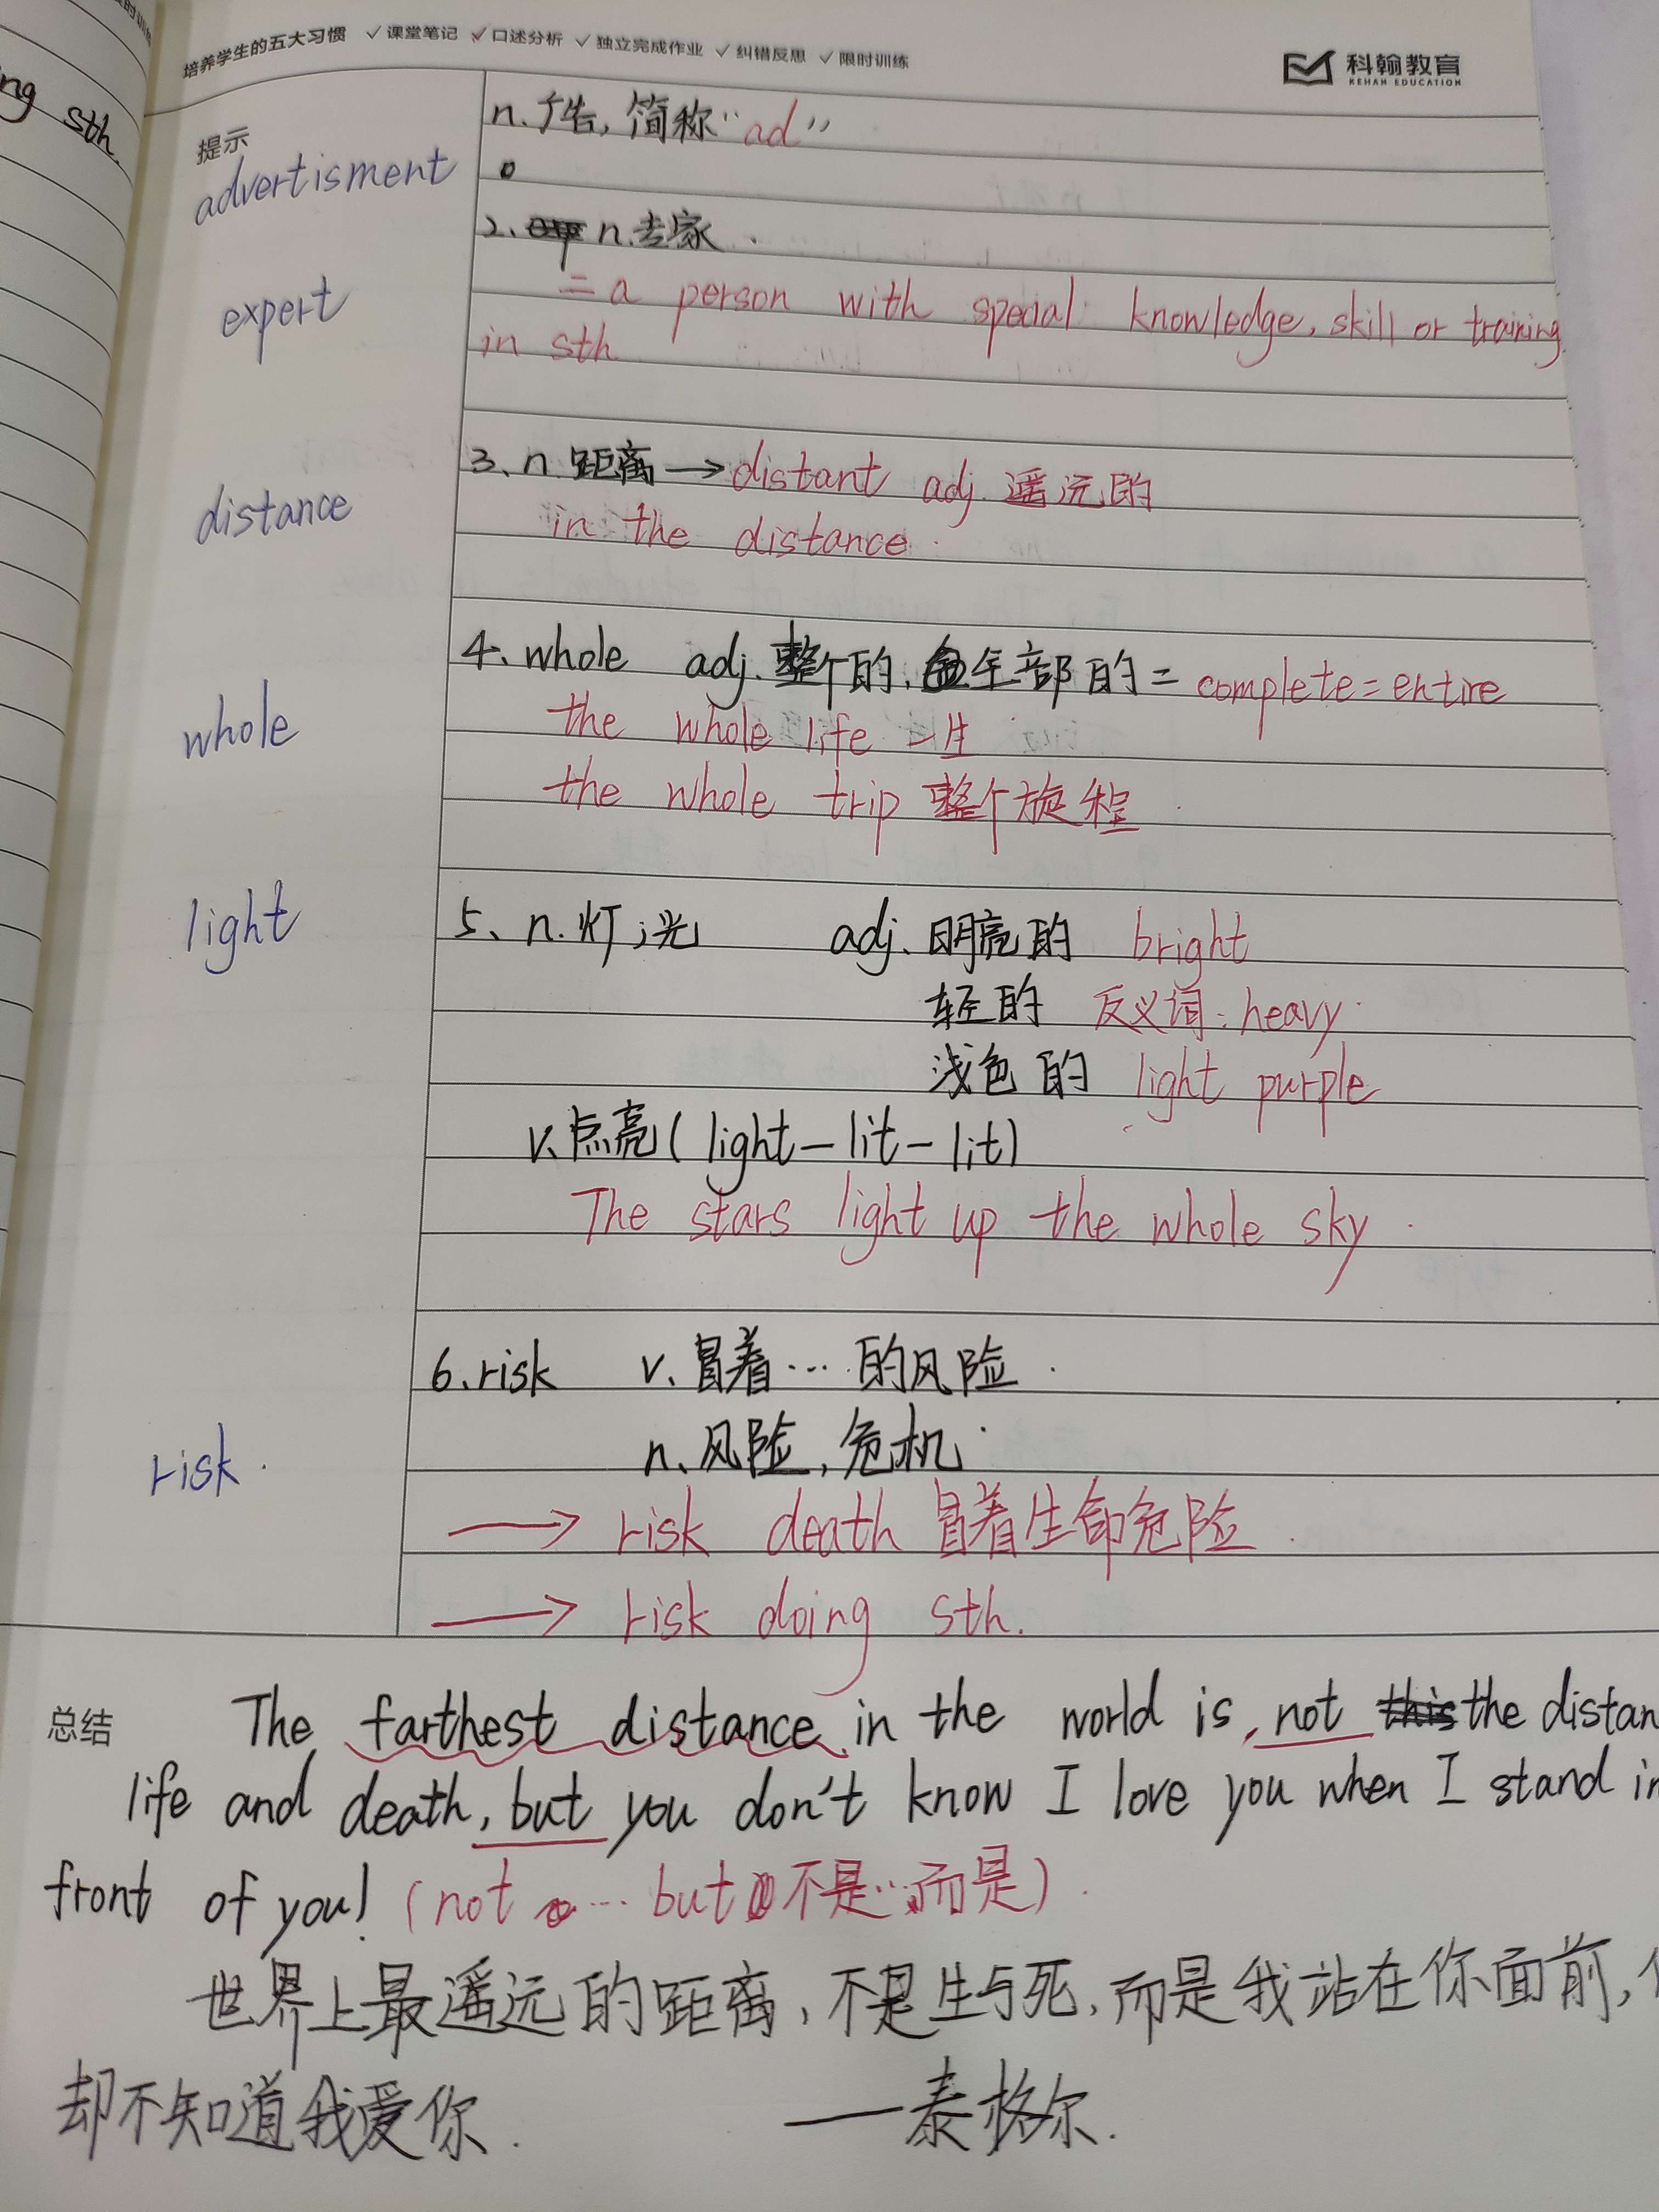 培养学生的五大习惯 ✓课堂笔记 ✓口述分析 ✓独立完成作业 ✓纠错反思 ✓限时训练
科翰教育
KEHAN EDUCATION
ng sth.
提示
advertisment
n.广告, 简称“ad”
expert
2、n.专家.
=a person with special knowledge, skill or training
in sth
distance
3、n 距离→distant adj. 遥远的
in the distance.
whole
4、whole adj.整个的、全部的=complete=entire
the whole life 一生
the whole trip 整个旅程.
light
5、n.灯;光 adj.明亮的 bright
轻的 反义词:heavy.
浅色的 light purple
v.点亮(light-lit-lit)
The stars light up the whole sky.
risk.
6.risk v.冒着…的风险.
n.风险,危机.
→ risk death 冒着生命危险.
→ risk doing sth.
总结
The farthest distance in the world is, not the distan
life and death, but you don't know I love you when I stand in
front of you! (not … but 不是…而是).
世界上最遥远的距离,不是生与死,而是我站在你面前,
却不知道我爱你.
——泰格尔.